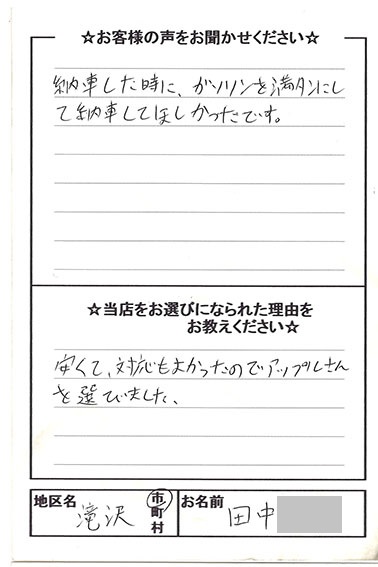 ☆お客様の声をお聞かせください☆
納車した時に、ガソリンを満タンにし
て納車してほしかったです。
☆当店をお選びになられた理由を
お教えください☆
安くて、対応もよかったのでアップルさん
を選びました、
地区名 滝沢 市町村 お名前 田中